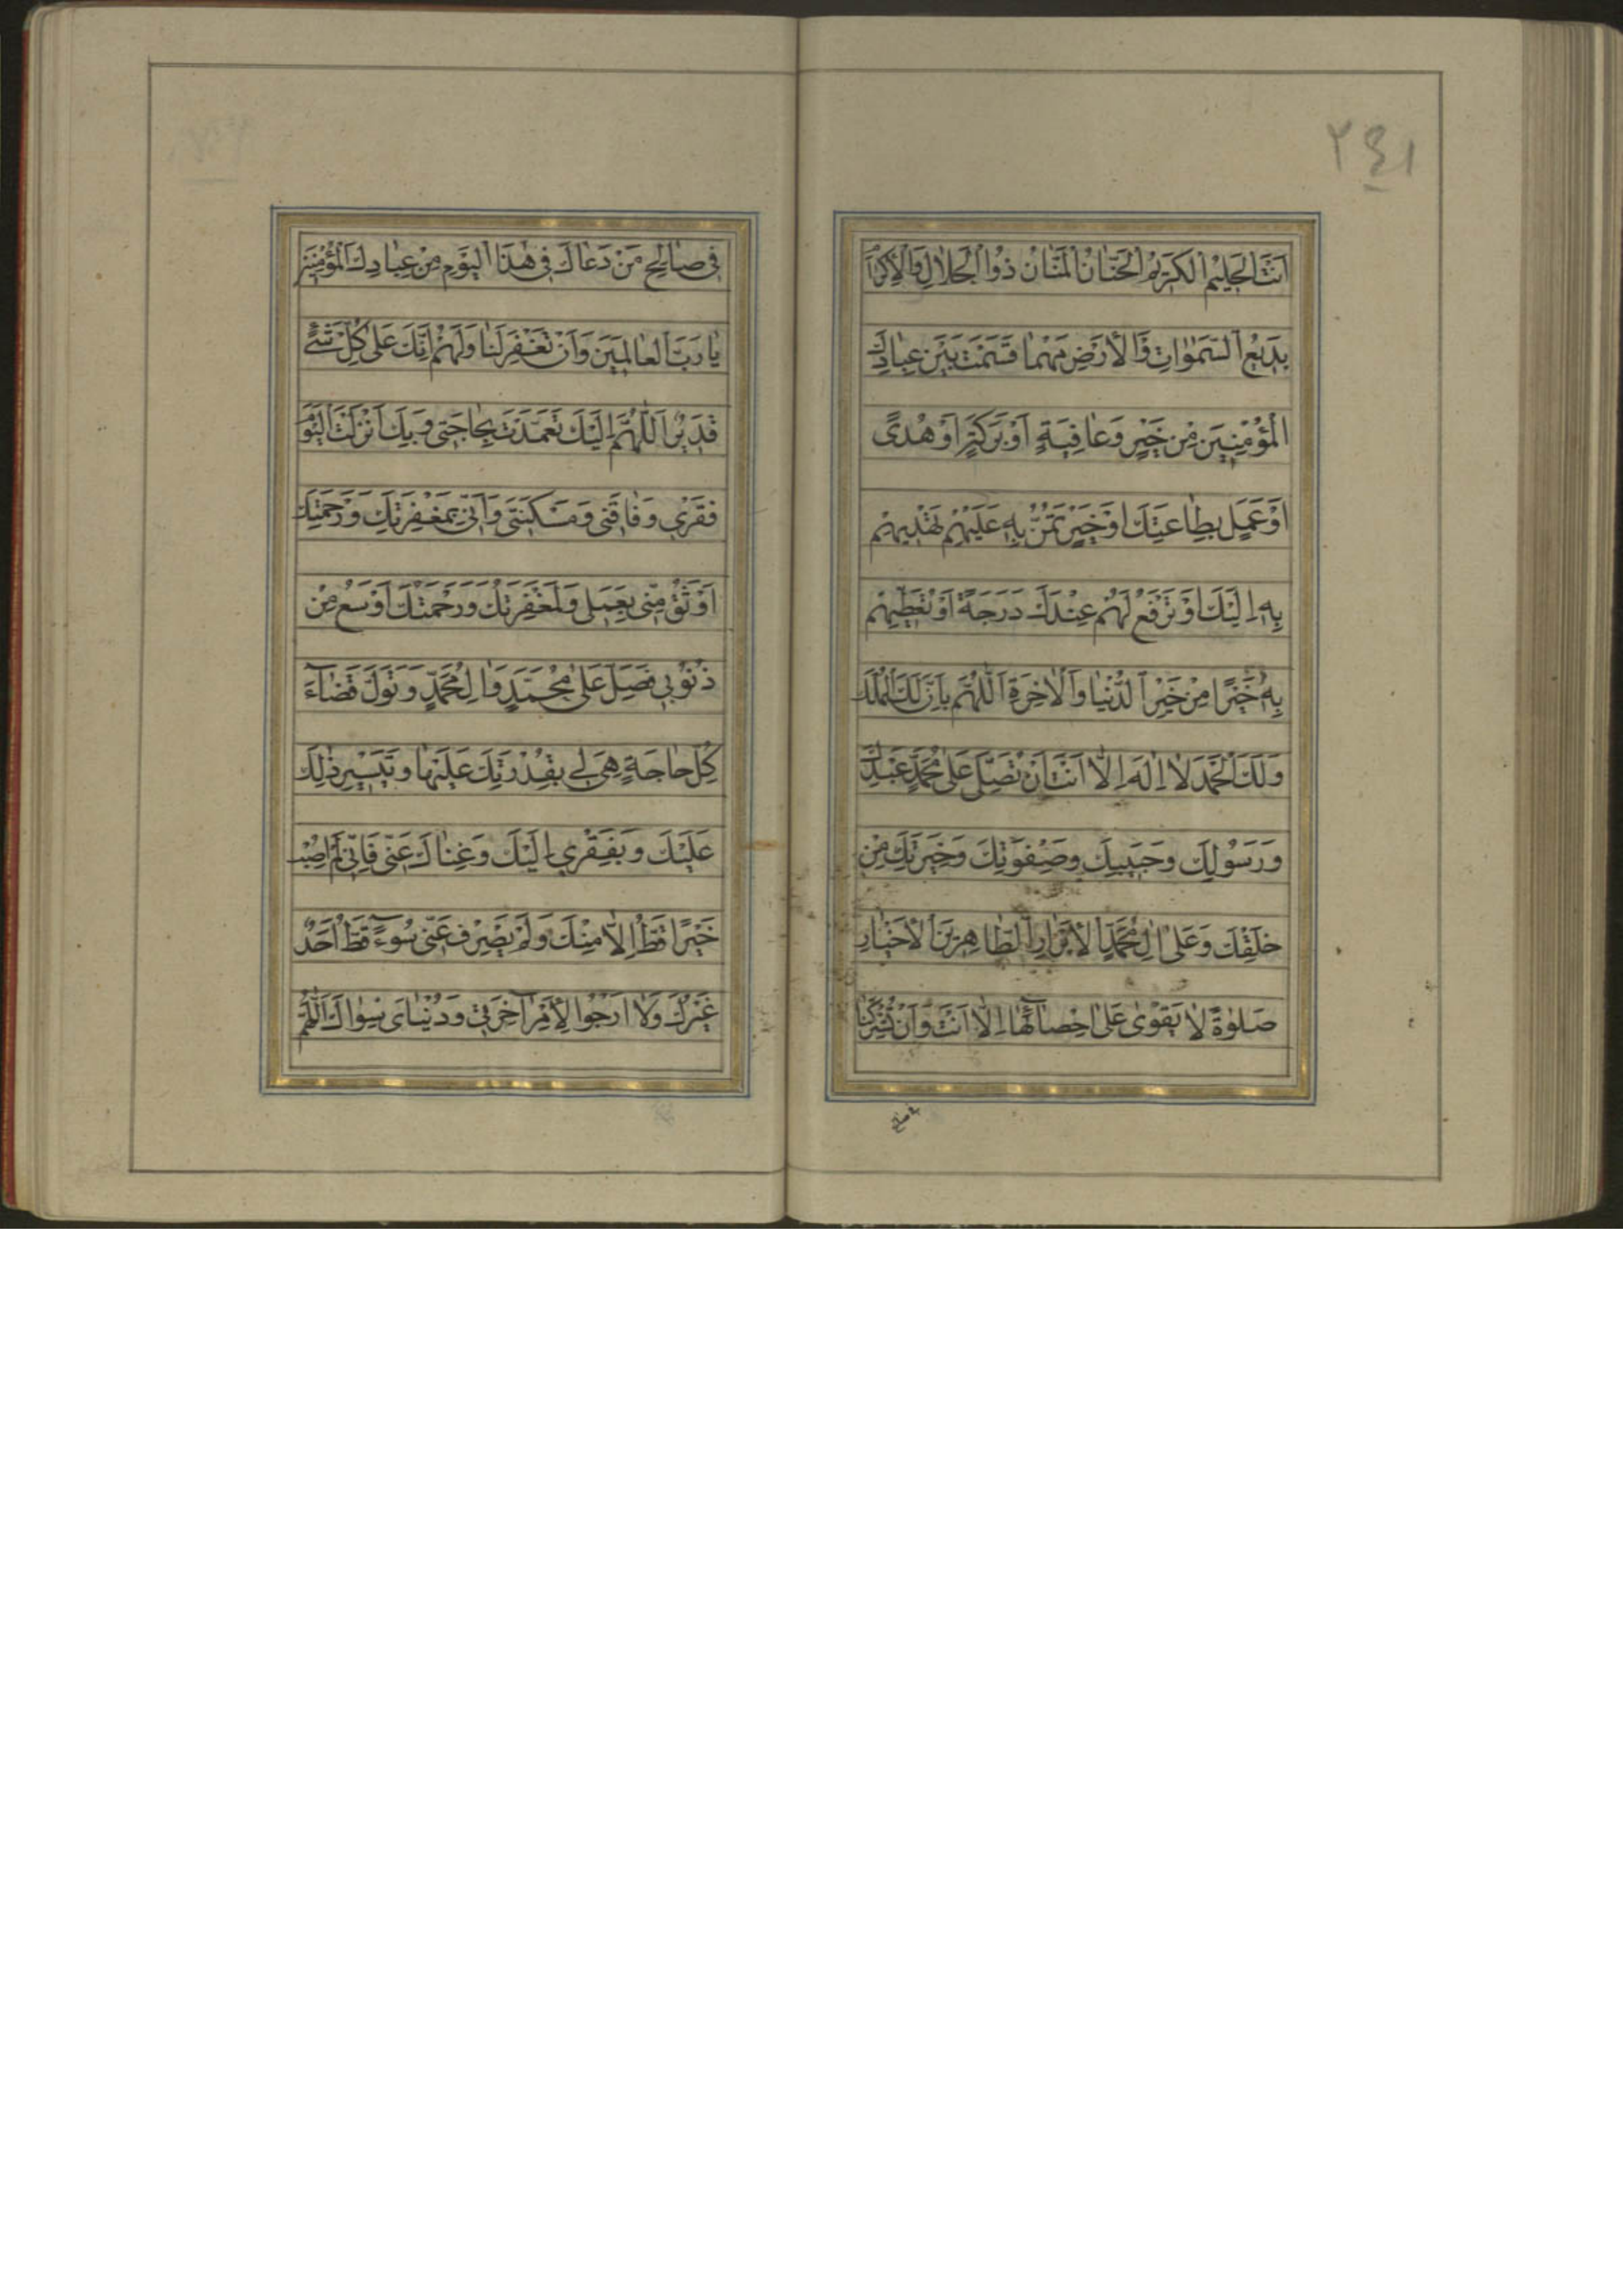 ٢٤١
اَنْتَ الْحَلیمُ الْكَریمُ الْحَنّٰانُ الْمَنّٰانُ ذُوا الْجَلٰالِ وَالْاِكْرٰامِ
بَدیعُ السَّمٰوٰاتِ وَالْاَرْضِ مَهْمٰا قَسَمْتَ بَیْنَ عِبٰادِكَ
الْمُؤْمِنینَ مِنْ خَیْرٍ وَعٰافِیَةٍ اَوْ بَرَكَةٍ اَوْ هُدىً
اَوْ عَمَلٍ بِطٰاعَتِكَ اَوْ خَیْرٍ تَمُنُّ بِهِ عَلَیْهِمْ تَهْدیهِمْ
بِهِ اِلَیْكَ اَوْ تَرْفَعُ لَهُمْ عِنْدَكَ دَرَجَةً اَوْ تُعْطیهِمْ
بِهِ خَیْرًا مِنْ خَیْرِ الدُّنْیٰا وَالْاٰخِرَةِ اَللّٰهُمَّ بِاَنَّ لَكَ الْمُلْكَ
وَلَكَ الْحَمْدَ لٰا اِلٰهَ اِلّٰا اَنْتَ اَنْ تُصَلِّیَ عَلٰى مُحَمَّدٍ عَبْدِكَ
وَرَسُولِكَ وَحَبیبِكَ وَصِفْوَتِكَ وَخِیَرَتِكَ مِنْ
خَلْقِكَ وَعَلٰى اٰلِ مُحَمَّدٍ الْاَبْرٰارِ الطّٰاهِرینَ الْاَخْیٰارِ
صَلٰوةً لٰا یَقْوٰى عَلٰى اِحْصٰائِهٰا اِلّٰا اَنْتَ وَاَنْ تُشْرِكَنٰا
فی صٰالِحِ
فی صٰالِحِ مَنْ دَعٰاكَ فی هٰذَا الْیَوْمِ مِنْ عِبٰادِكَ الْمُؤْمِنینَ
یٰا رَبَّ الْعٰالَمینَ وَاَنْ تَغْفِرَ لَنٰا وَلَهُمْ اِنَّكَ عَلٰى كُلِّ شَیْءٍ
قَدیرٌ اَللّٰهُمَّ اِلَیْكَ تَعَمَّدْتُ بِحٰاجَتی وَبِكَ اَنْزَلْتُ الْیَوْمَ
فَقْری وَفٰاقَتی وَمَسْكَنَتی وَاَنّی بِمَغْفِرَتِكَ وَرَحْمَتِكَ
اَوْثَقُ مِنّی بِعَمَلی وَلَمَغْفِرَتُكَ وَرَحْمَتُكَ اَوْسَعُ مِنْ
ذُنُوبی فَصَلِّ عَلٰى مُحَمَّدٍ وَاٰلِ مُحَمَّدٍ وَتَوَلَّ قَضٰآءَ
كُلِّ حٰاجَةٍ هِیَ لی بِقُدْرَتِكَ عَلَیْهٰا وَتَیْسیرِ ذٰلِكَ
عَلَیْكَ وَبِفَقْری اِلَیْكَ وَغِنٰاكَ عَنّی فَاِنّی لَمْ اُصِبْ
خَیْرًا قَطُّ اِلّٰا مِنْكَ وَلَمْ یَصْرِفْ عَنّی سُوءً قَطُّ اَحَدٌ
غَیْرُكَ وَلٰا اَرْجُوا لِاَمْرِ اٰخِرَتی وَدُنْیٰاىَ سِوٰاكَ اَللّٰهُمَّ